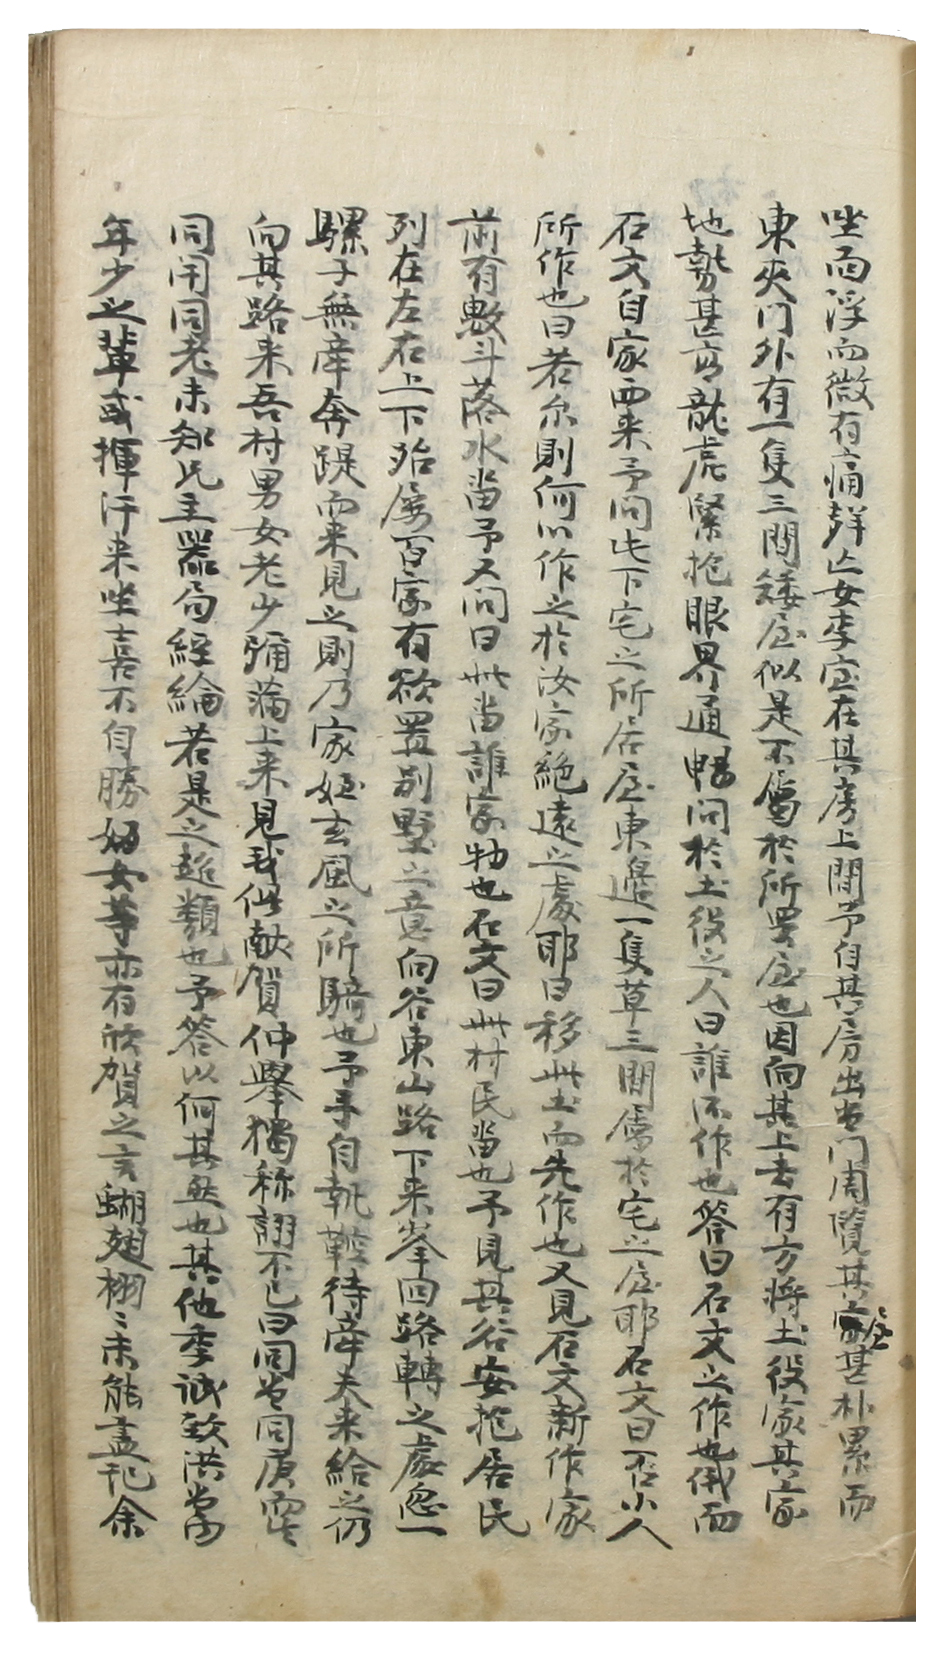 坐而浮而微有痛群亡女李室在其房上間予自其房出出門周覽其家屋甚朴累而
東夾門外有一隻三間矮屋似是不屬於所買屋也因向其上去有方將土役家其家
地勢甚高龍虎緊抱眼界通暢問於土役之人曰誰所作也答曰石文之作也俄而
石文自家而来予問此下宅之所居屋東邊一隻草三間屬於宅之屋耶石文曰否小人
所作也曰若尒則何以作之於汝家絶遠之處耶曰移此土而先作也又見石文新作家
前有數斗落水畓予又問曰此畓誰家物也石文曰此村民畓也予見其谷安抱居民
列在左右上下殆屡百家有欲置別墅之意向谷東山路下来峯回路轉之處忽一
騾子無牽奔踶而来見之則乃家姪玄風之所騎也予手自執轡待牽夫来給之仍
向其路来吾村男女老少彌滿上来見我皆獻賀仲擧獨称詡不已曰同甞同庚
同用同老未知兄主器局經綸若是之超類也予答以何其然也其他季誠欽洪
年少之輩或揮汗来坐喜不自勝婦女等亦有欣賀之言蝴翅栩〻未能盡記余